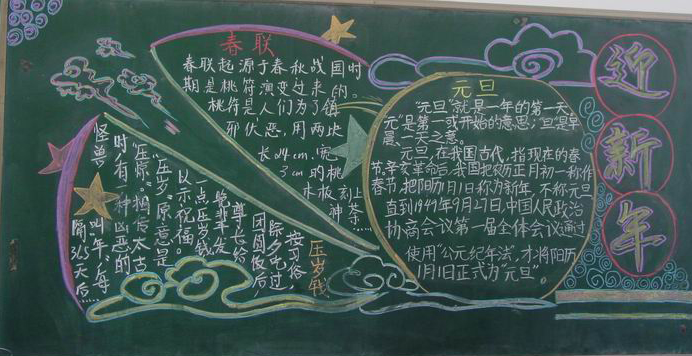 春联
春联起源于春秋战国时
期是桃符演变过来的。
桃符是人们为了镇
邪伏恶，用两块
长24cm，宽
3cm的桃
木板刻上
神荼……
元旦
"元旦"就是一年的第一天。
元"是第一或开始的意思，旦"是早
晨、一天之意。
元旦，在我国古代，指现在的春
节，辛亥革命后，我国把农历正月初一称作
春节，把阳历1月1日称为新年，不称元旦
直到1949年9月27日，中国人民政治
协商会议第一届全体会议通过
使用"公元纪年法"，才将阳历
1月1日正式为"元旦"。
迎
新
年
压岁钱
按习俗，
除夕吃过
团圆饭后
尊长给
晚辈发
一点压岁钱
以示祝福。
"压岁"原意是
"压惊"，相传太古
时，有一种凶恶的
怪兽
叫"年"，每
隔365天后……